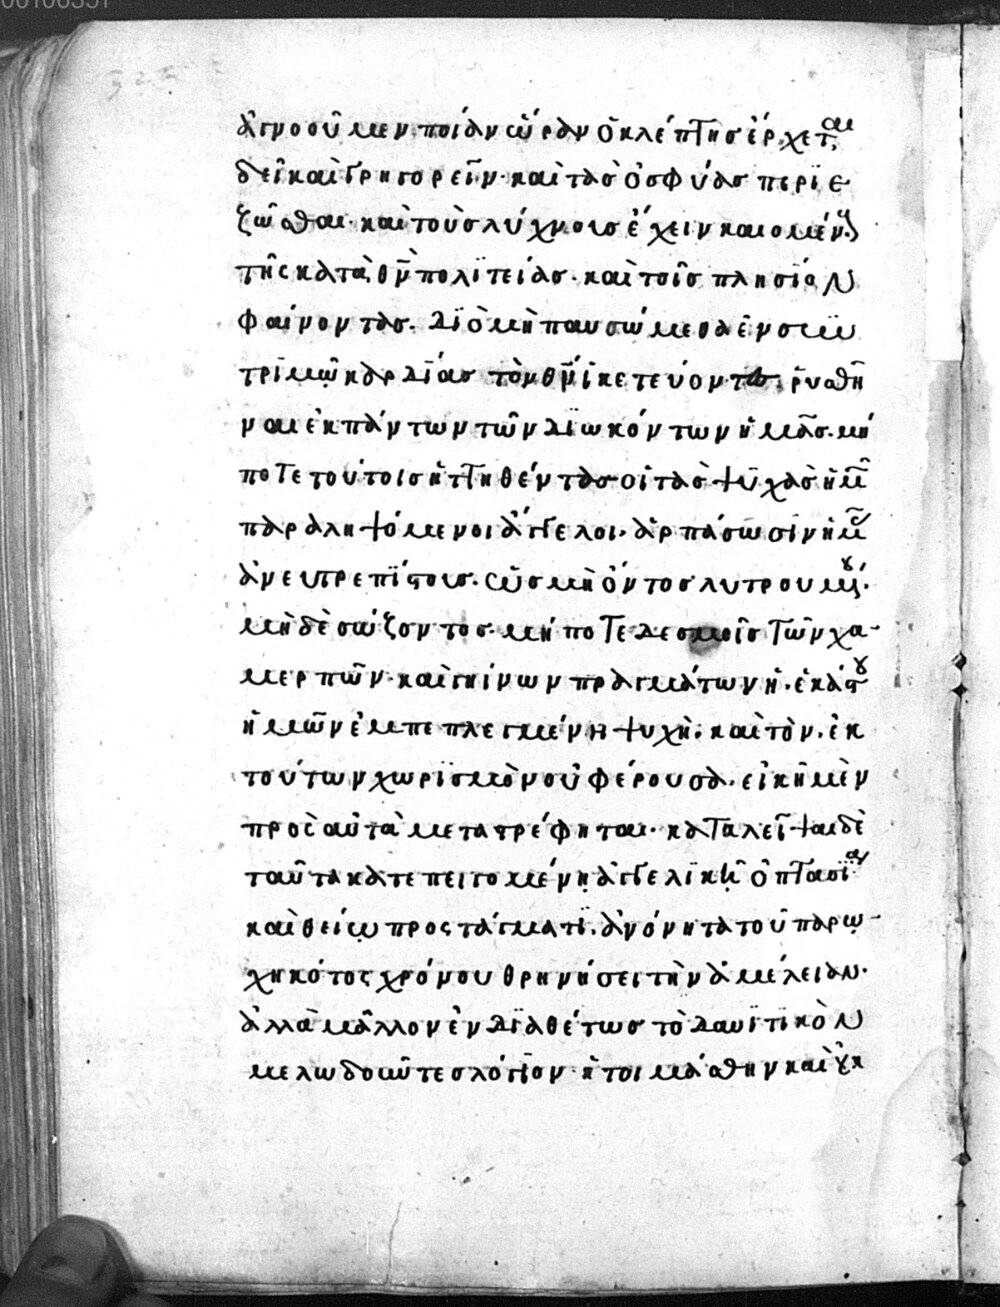 ἀγνοοῦμεν ποίαν ὥραν ὁ κλέπτης ἔρχεται
δεῖ καὶ γρηγορεῖν· καὶ τὰς ὀσφύας περιε
ζῶσθαι· καὶ τοὺς λύχνους ἔχειν καιομένους
τῆς κατὰ θν πολιτείας· καὶ τοῖς πλησίον
φαίνοντας. διὸ μὴ παυσώμεθα ἐν συν
τριμμῷ καρδίας τὸν θν ἱκετεύοντες, ῥυσθῆ
ναι ἐκ πάντων τῶν διωκόντων ἡμᾶς. μή
ποτε τούτοις ἡττηθέντας οἱ τὰς ψυχὰς ἡμῶν
παραληψόμενοι ἄγγελοι. ἁρπάσωσιν ἡμᾶς
ἀνευτρεπίστους. ὡς μὴ ὄντος λυτρουμένου.
μὴ δὲ σώζοντος. μή ποτε δεσμοῖς τῶν χα
μερπῶν καὶ γηίνων πραγμάτων ἡ ἑκάστου
ἡμῶν ἐμπεπλεγμένη ψυχὴ. καὶ τὸν ἐκ
τούτων χωρισμὸν οὐ φέρουσα. εἰκῆ μὲν
πρὸς αὐτὰ μεταστρέφηται· καταλεῖψαι δὲ
ταῦτα κατεπειγομένη ἀγγελικῇ ὀπτασίᾳ
καὶ θείῳ προστάγματι. ἀνόνητα τοῦ παρῳ
χηκότος χρόνου θρηνήσει τὴν ἀμέλειαν.
ἀλλὰ μᾶλλον ἐνδιαθέτως τὸ δαυιτικὸν
μελωδοῦντες λόγιον· ἡτοιμάσθην καὶ οὐκ